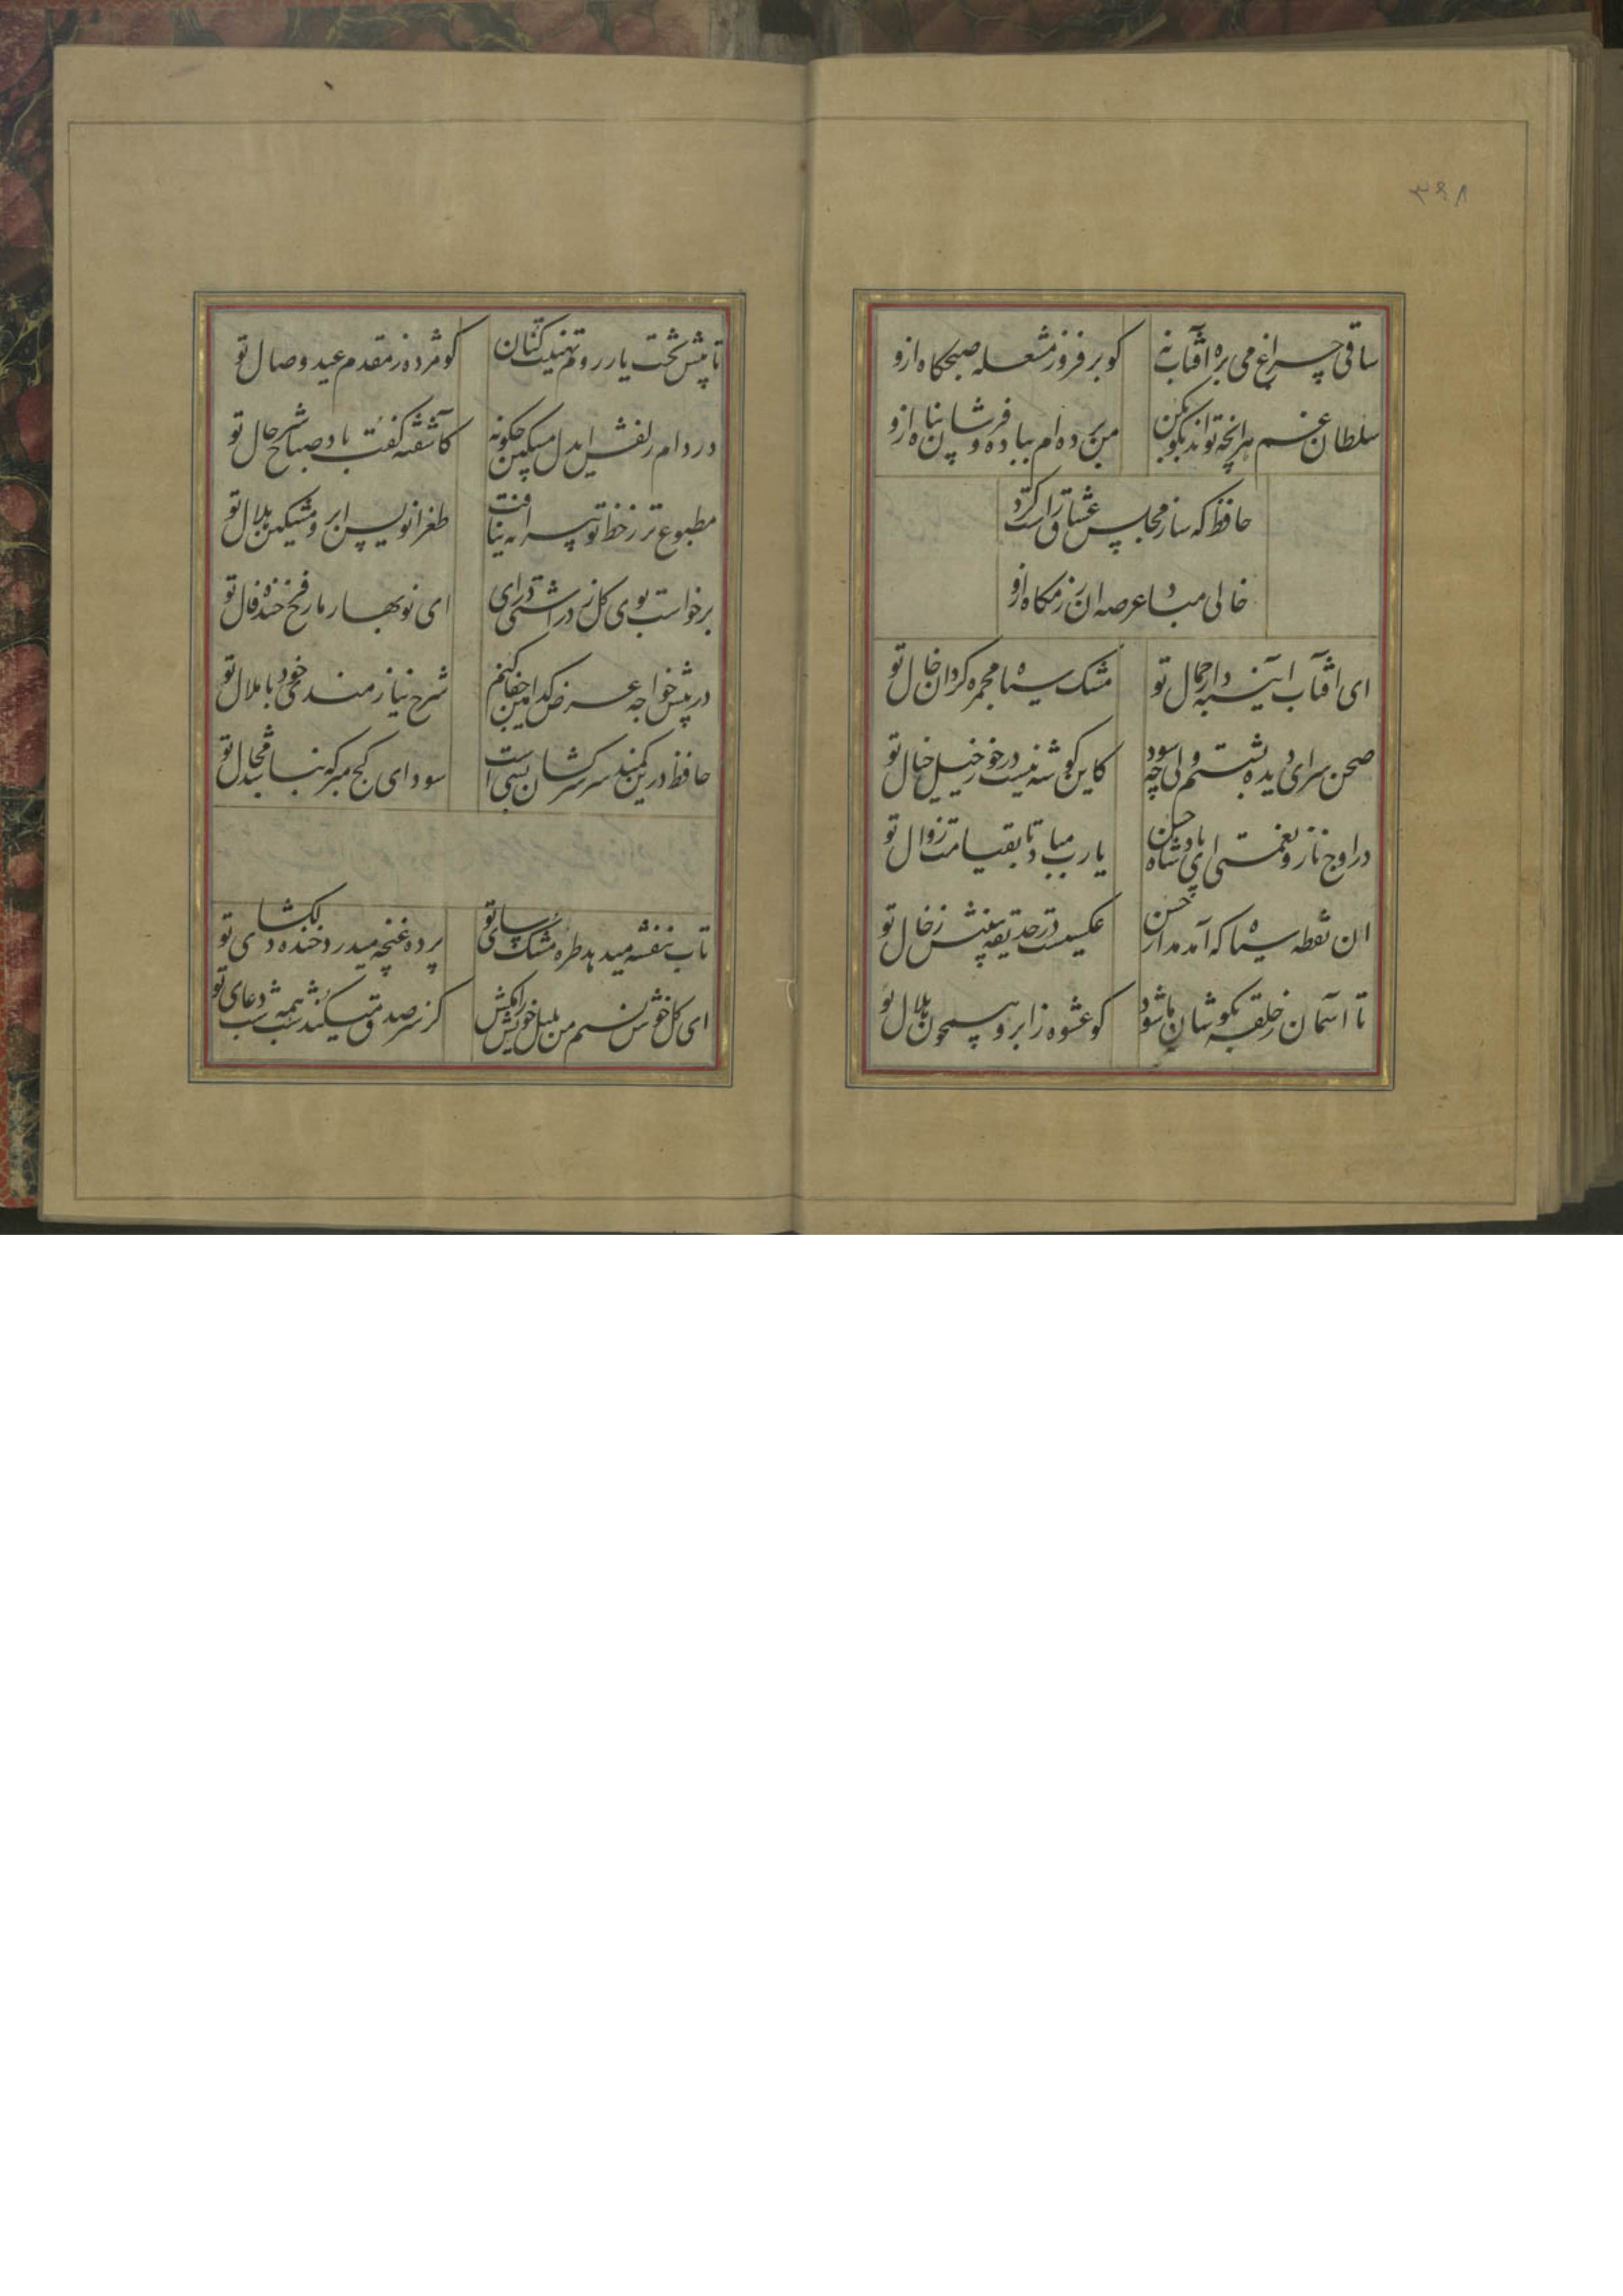 ۳۶۸
ساقی چراغ می بره افتاب نه
کو برفروز مشعله صبحکاه ازو
سلطان غم هرانچه تواند بکو بکن
من برده ام بباده فروشان پناه ازو
حافظ که ساز مجلس عشاق راست کرد
خالی مباد عرصه این بزمکاه ازو
ای افتاب اینه دار جمال تو
مشک سیاه مجمره کردان خال تو
صحن سرای دیده بشستم ولی چه سود
کاین کوشه نیست درخور خیل خیال تو
در اوج ناز و نعمتی ای پادشاه حسن
یارب مباد تا بقیامت زوال تو
ان نقطه سیاه که آمد مدار حسن
عکسیست در حدیقه بینش ز خال تو
تا آسمان ز حلقه بکوشان ما شود
کو عشوه ز ابروی همچون هلال تو
تا پیش تخت یار روم تهنیت کنان
کو مژده ز مقدم عید وصال تو
در دام زلفش ای دل مسکین چکونه
کاشفته کفت باد صبا شرح حال تو
مطبوع تر ز خط تو صورت نیافت
طغرانویس ابروی مشکین هلال تو
برخواست بوی کل ز در اشتی درای
ای نوبهار ما رخ فرخنده فال تو
در پیش خواجه عرض کدامین جفا کنم
شرح نیازمندی خود با ملال تو
حافظ درین کمند سر سرکشان بسی است
سودای کج مبر که نباشد مجال تو
تاب بنفشه میدهد طره مشک سای تو
پرده غنچه میدرد خنده دلکشای تو
ای کل خوش نسیم من بلبل خویش را مکش
کز سر صدق میکند شب همه شب دعای تو